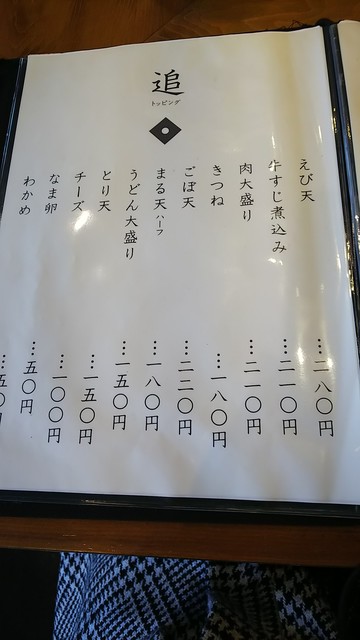 追
トッピング
えび天…二八〇円
牛すじ煮込み…二一〇円
肉大盛り…二一〇円
きつね…一八〇円
ごぼ天…二二〇円
まる天ハーフ…一八〇円
うどん大盛り…一五〇円
とり天…一五〇円
チーズ…一〇〇円
なま卵…五〇円
わかめ…五〇円